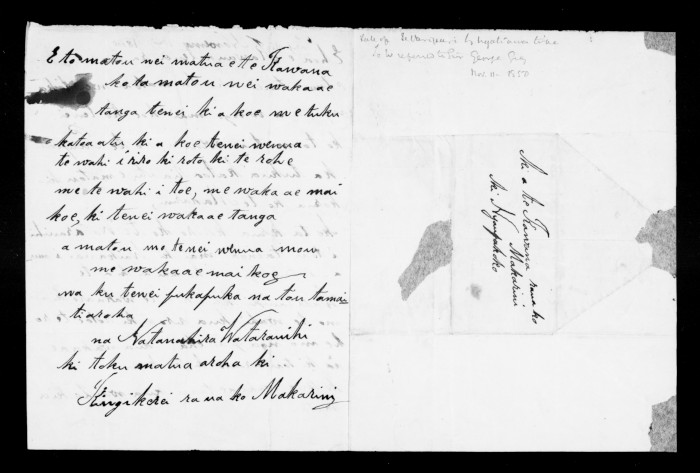 E to matou nei matua e te Kawana
ko ta matou nei wakaae
tanga tenei ki a koe me tuku
katoa atu ki a koe tenei wenua
te wahi i riro ki roto ki te rohe
me te wahi i toe, me waka ae mai
koe, ki tenei wakaae tanga
a matou mo tenei wenua mou
me wakaae mai koe
na ku tenei pukapuka na tou tamai
ti aroha
na Natanahira Wataruihi
ki toku matua aroha ki
Kingi kerei ra ua ko Makarini
Sale of by
to be referred to Sir George Grey
Nov 11. 1850
Ki a te Kawana raua ko
Makarini
Ki